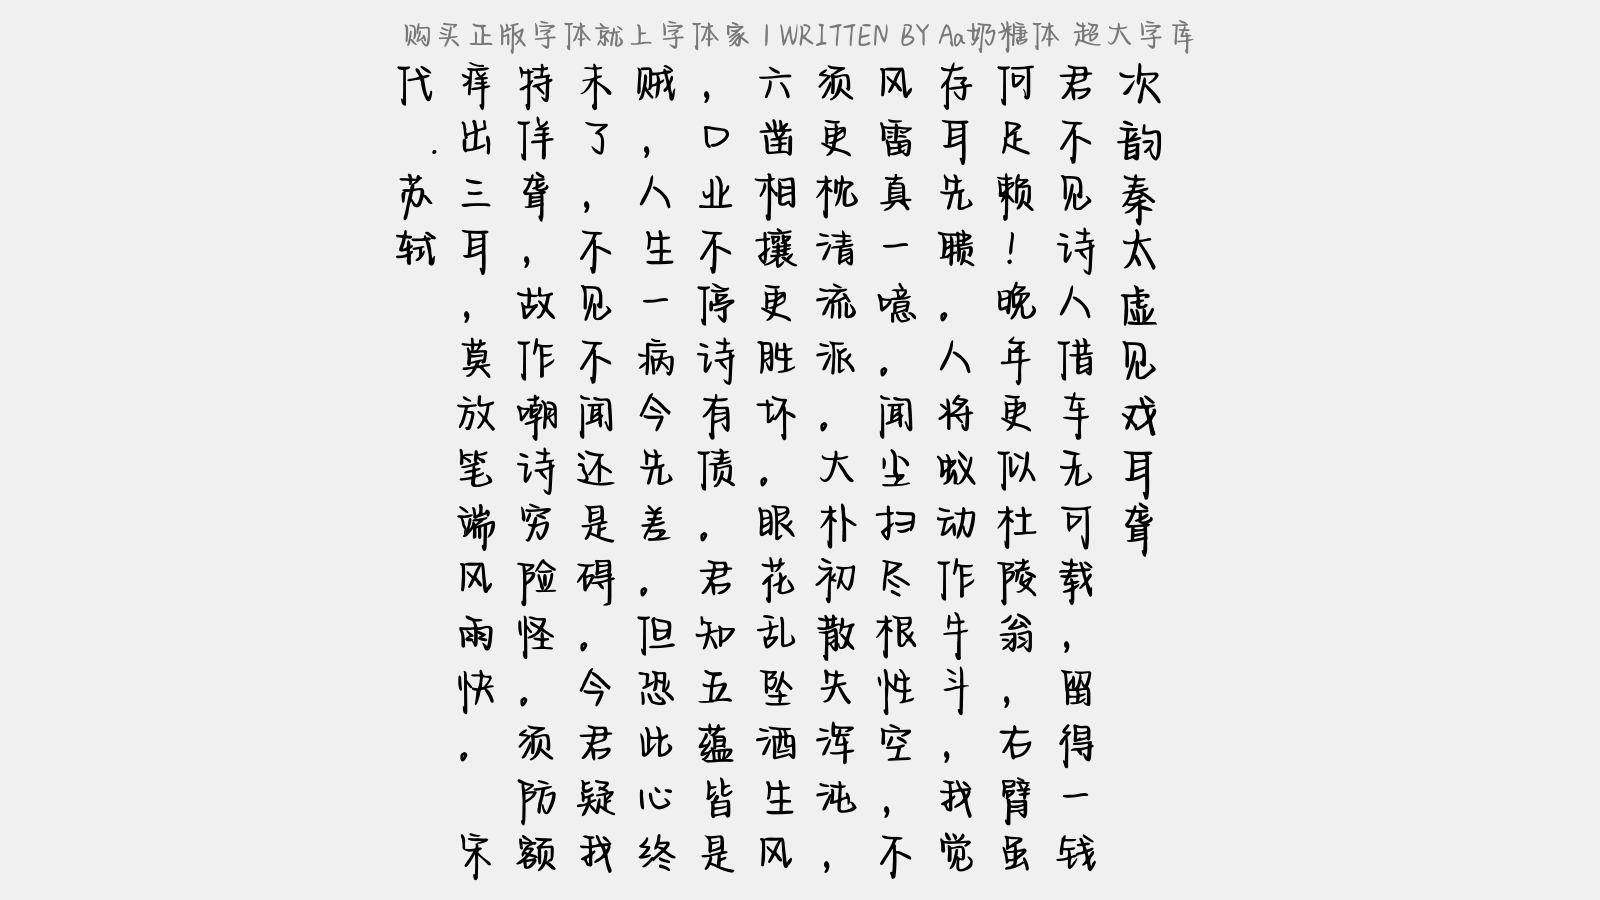 购买正版字体就上字体家 | WRITTEN BY Aa奶糖体 超大字库
次韵秦太虚见戏耳聋
君不见诗人借车无可载，留得一钱
何足赖！晚年更似杜陵翁，右臂虽
存耳先聩。人将蚁动作牛斗，我觉
风雷真一噫。闻尘扫尽根性空，不
须更枕清流派。大朴初散失浑沌，
六凿相攘更胜坏。眼花乱坠酒生风
，口业不停诗有债。君知五蕴皆是
贼，人生一病今先差。但恐此心终
未了，不见不闻还是碍。今君疑我
特佯聋，故作嘲诗穷险怪。须防额
痒出三耳，莫放笔端风雨快。 宋
代.苏轼